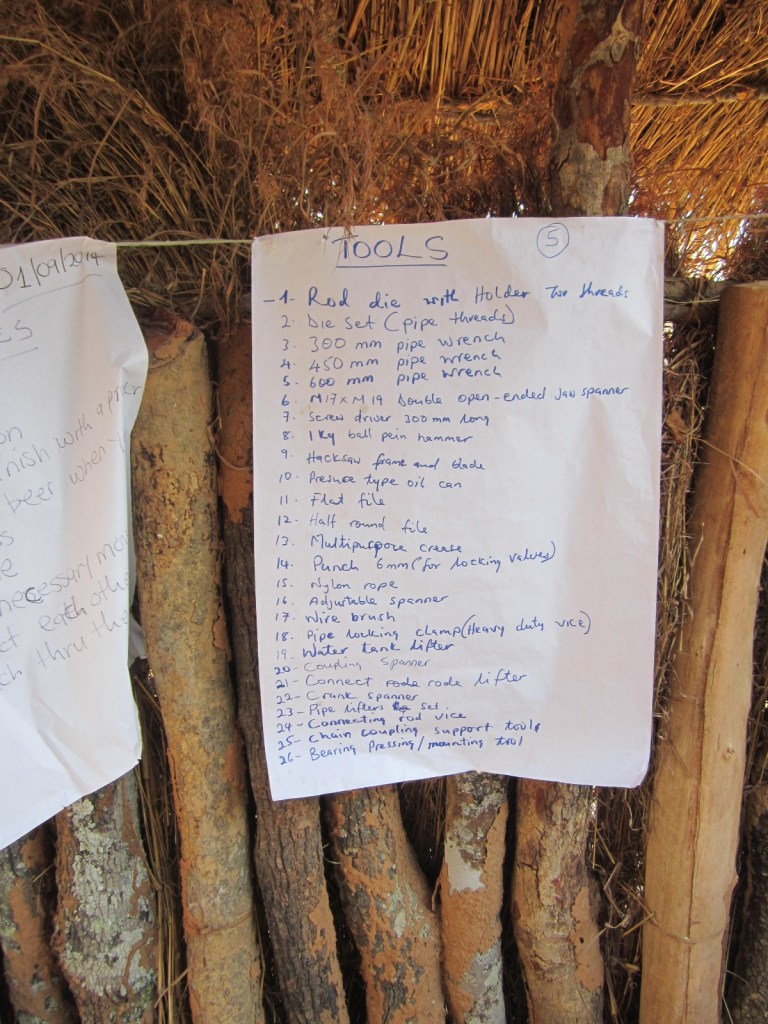 01/09/2014
ES
on
nish with a prayer
beer when y
s
e
necessary mov
ct each othe
ch thru the
TOOLS 5
- 1. Rod die with Holder for threads
2. Die set (pipe threads)
3. 300 mm pipe wrench
4. 450 mm pipe wrench
5. 600 mm pipe wrench
6. M17 x M19 Double open-ended Jaw spanner
7. Screw driver 300 mm long
8. 1 kg ball pein hammer
9. Hacksaw frame and blade
10. Presure type oil can
11. Flat file
12. Half round file
13. Multipurpose crease
14. Punch 6mm (for locking valves)
15. Nylon rope
16. Adjustable spanner
17. Wire brush
18. Pipe locking clamp (Heavy duty vice)
19. Water tank lifter
20- Coupling spanner
21- Connect rode rode lifter
22- Crank spanner
23- Pipe lifters set.
24- Connecting rod vice
25- Chain coupling support tools
26- Bearing Pressing/mounting tool